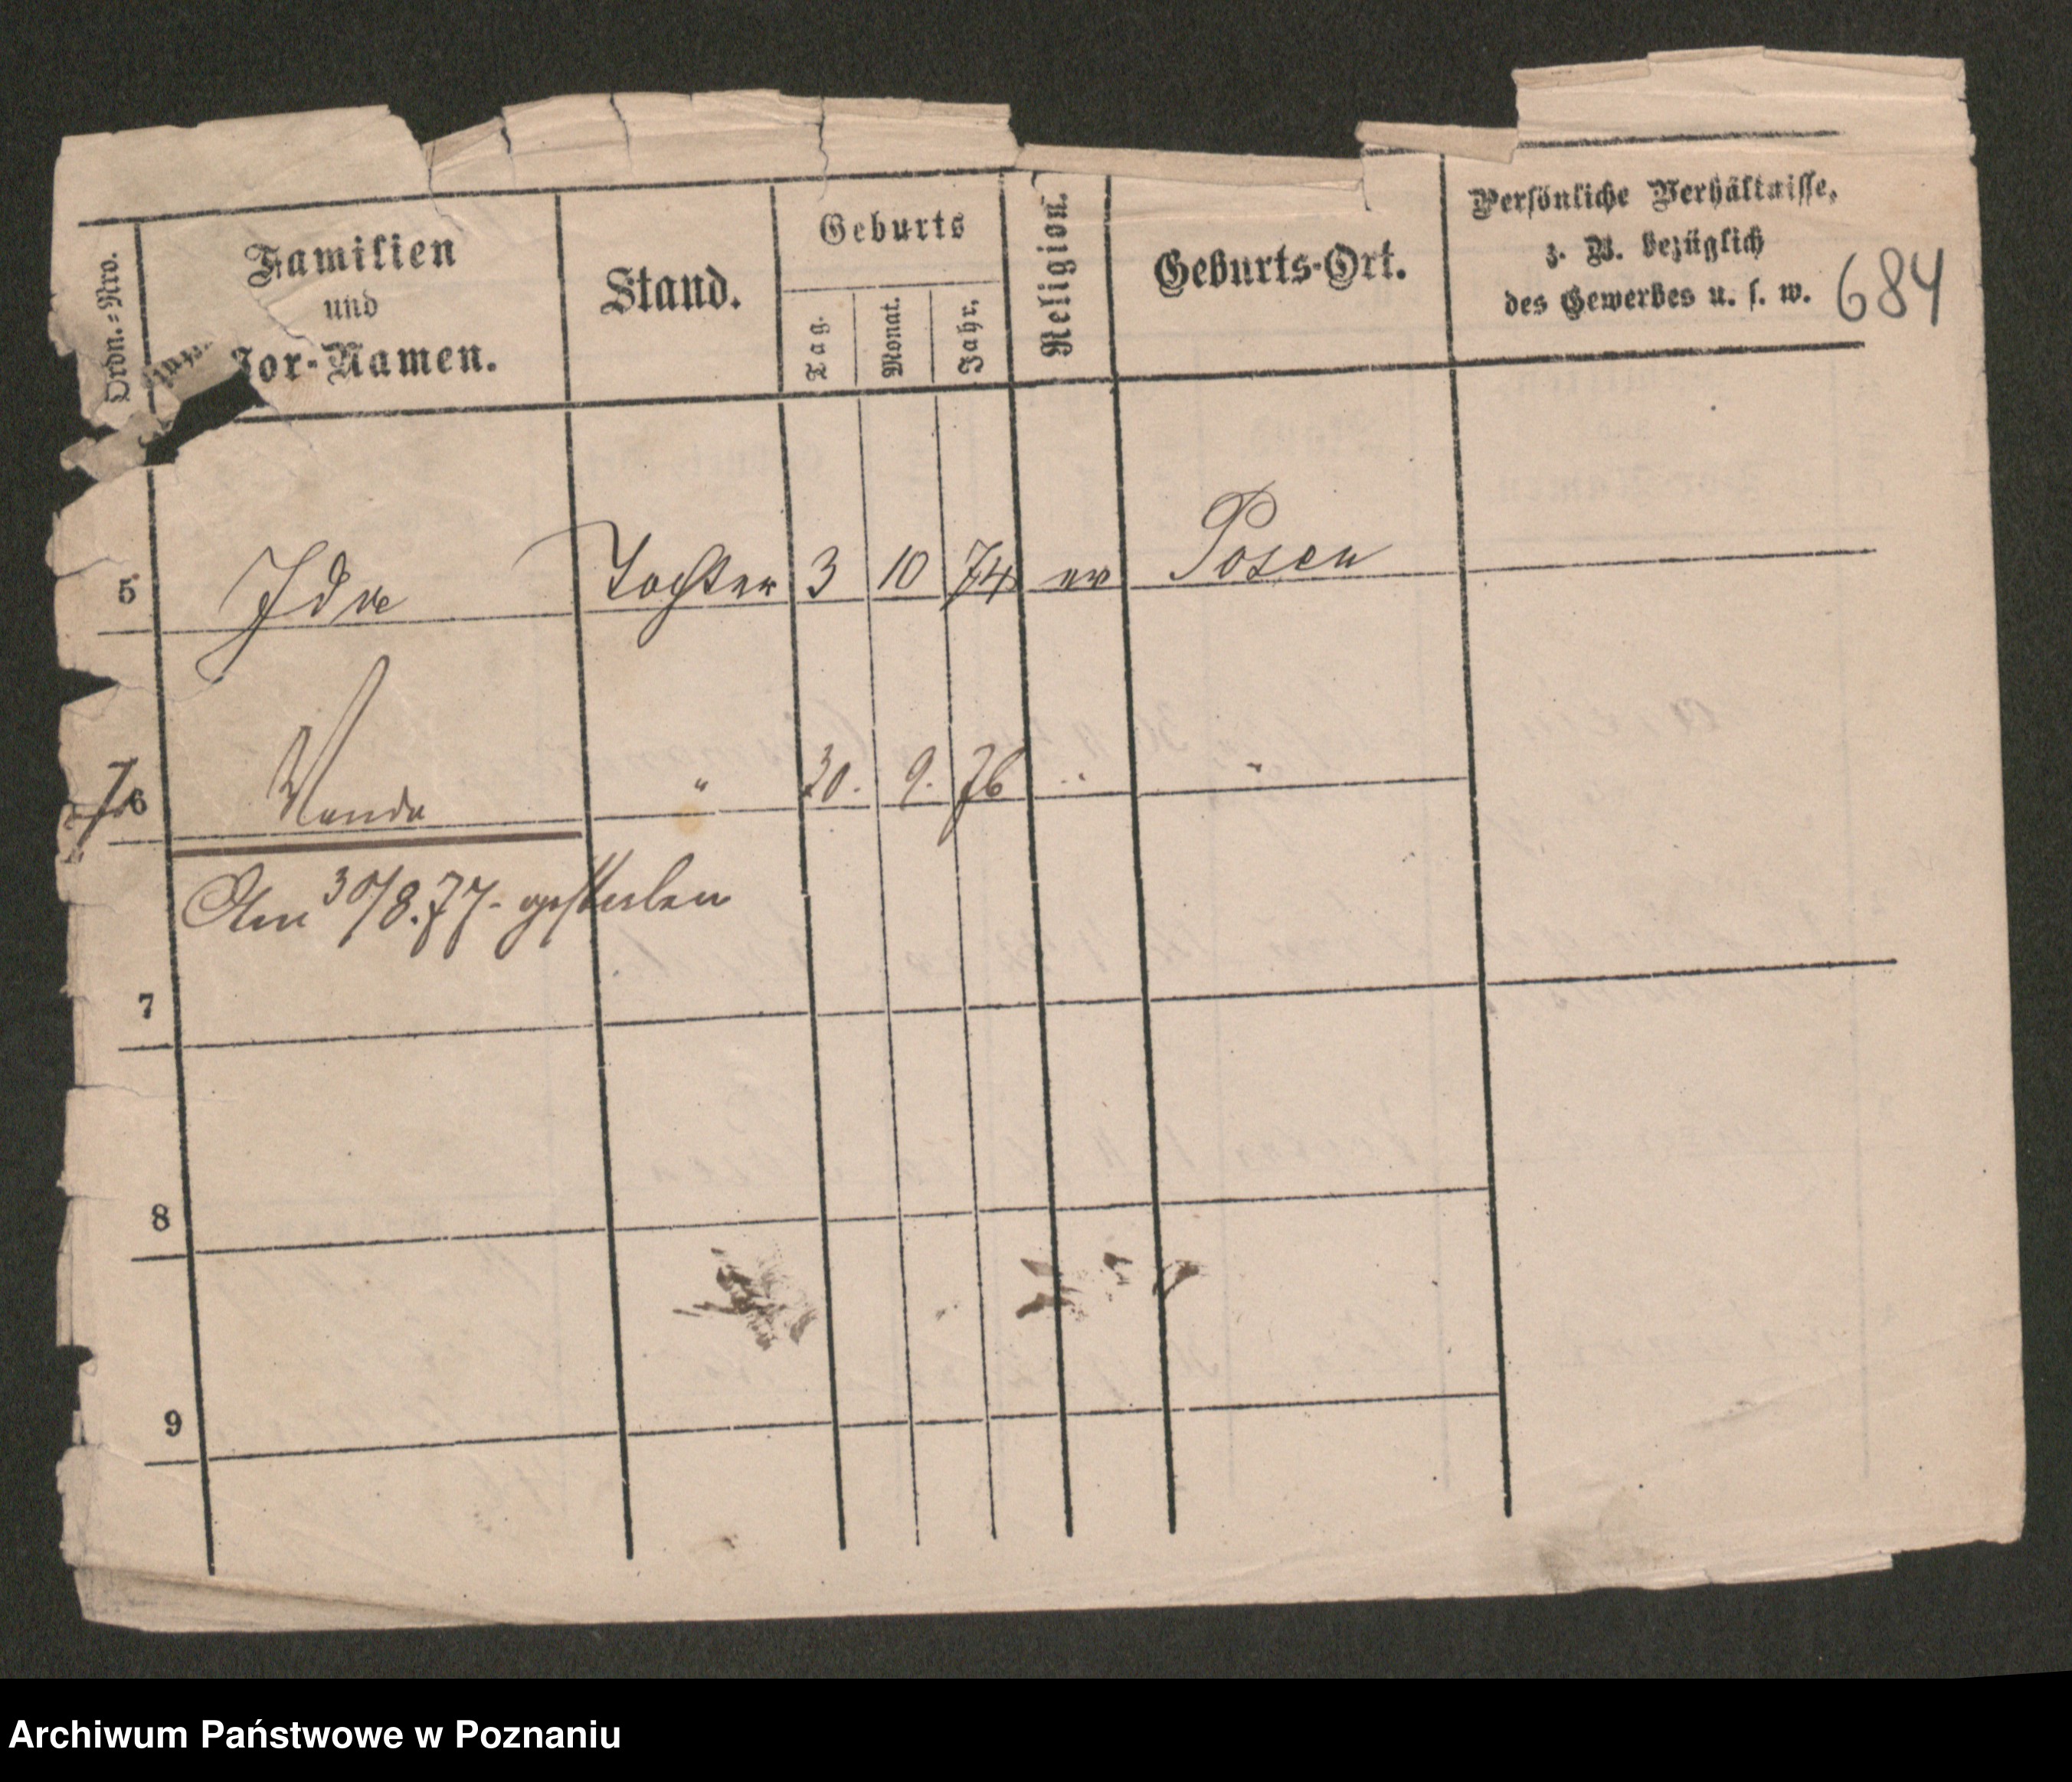 Ordn.=Nro.
Familien
und
Vor-Namen.
Stand.
Geburts
Tag.
Monat.
Jahr.
Religion.
Geburts-Ort.
Persönliche Verhältnisse,
z. B. bezüglich
des Gewerbes u. s. w.
684
5 Ida Tochter 3 10 74 ev Posen
6 Wanda " 30. 9. 76 " "
Am 30/8.77. gestorben
7
8
9
Archiwum Państwowe w Poznaniu